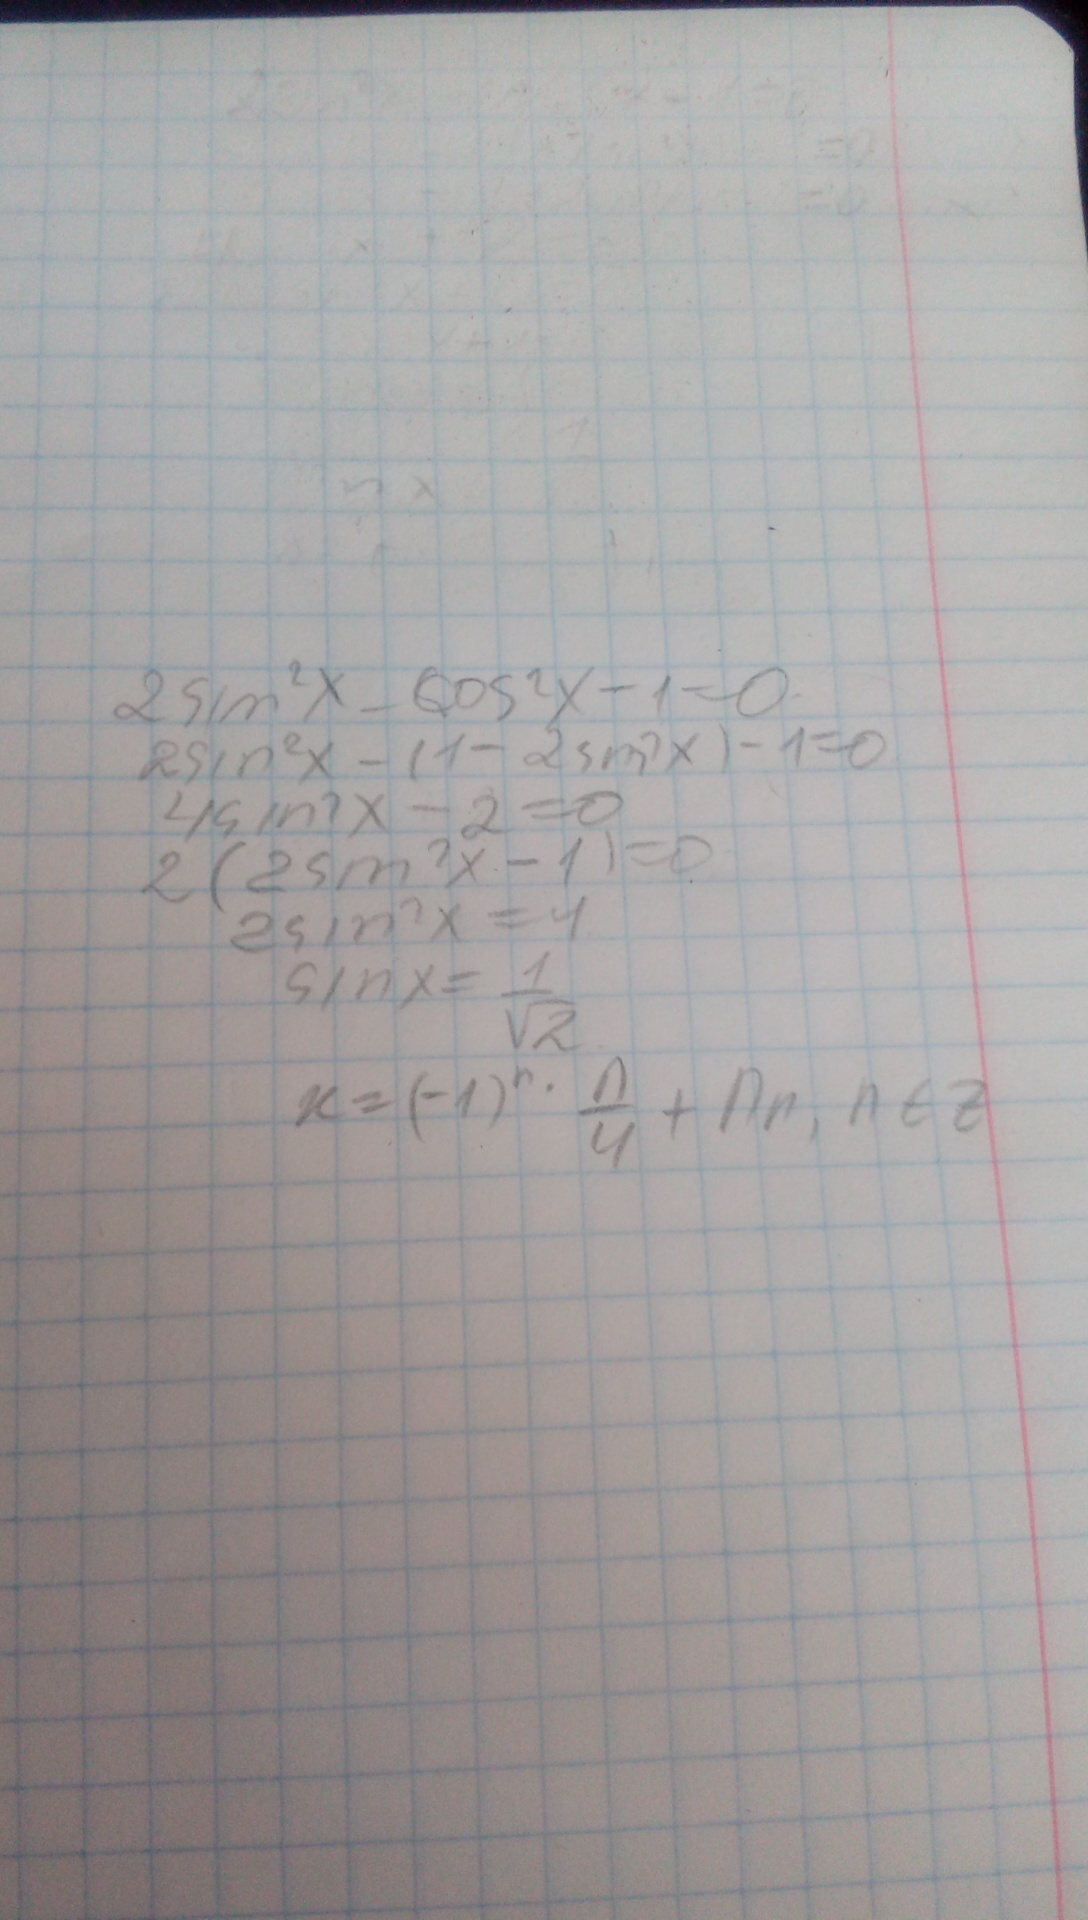 2sin²x - cos²x - 1 = 0
2sin²x - (1 - 2sin²x) - 1 = 0
4sin²x - 2 = 0
2(2sin²x - 1) = 0
2sin²x = 1
sinx = 1/√2
x = (-1)ⁿ · π/4 + πn, n ∈ Z